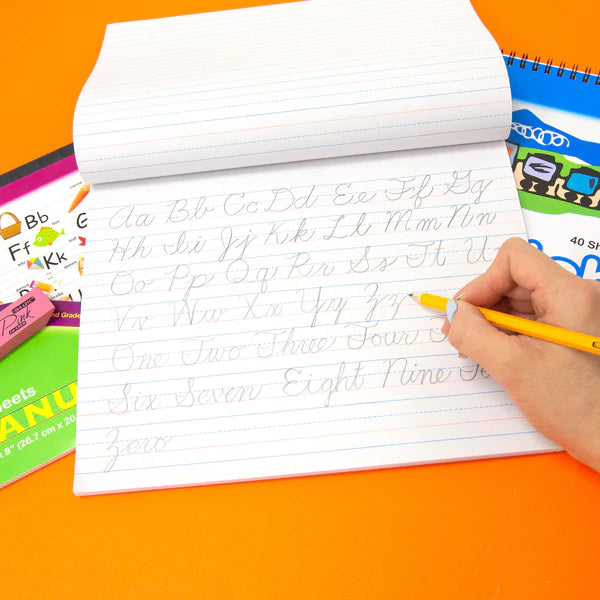 Aa Bb Cc Dd Ee Ff Gg
Hh Ii Jj Kk Ll Mm Nn
Oo Pp Qq Rr Ss Tt U
Vv Ww Xx Yy Zz
One Two Three Four
Six Seven Eight Nine Te
Zero
Bb
Ff
Kk
Pink
nd Grade
eets
ANU
8" (26.7 cm x 20
40 Sh